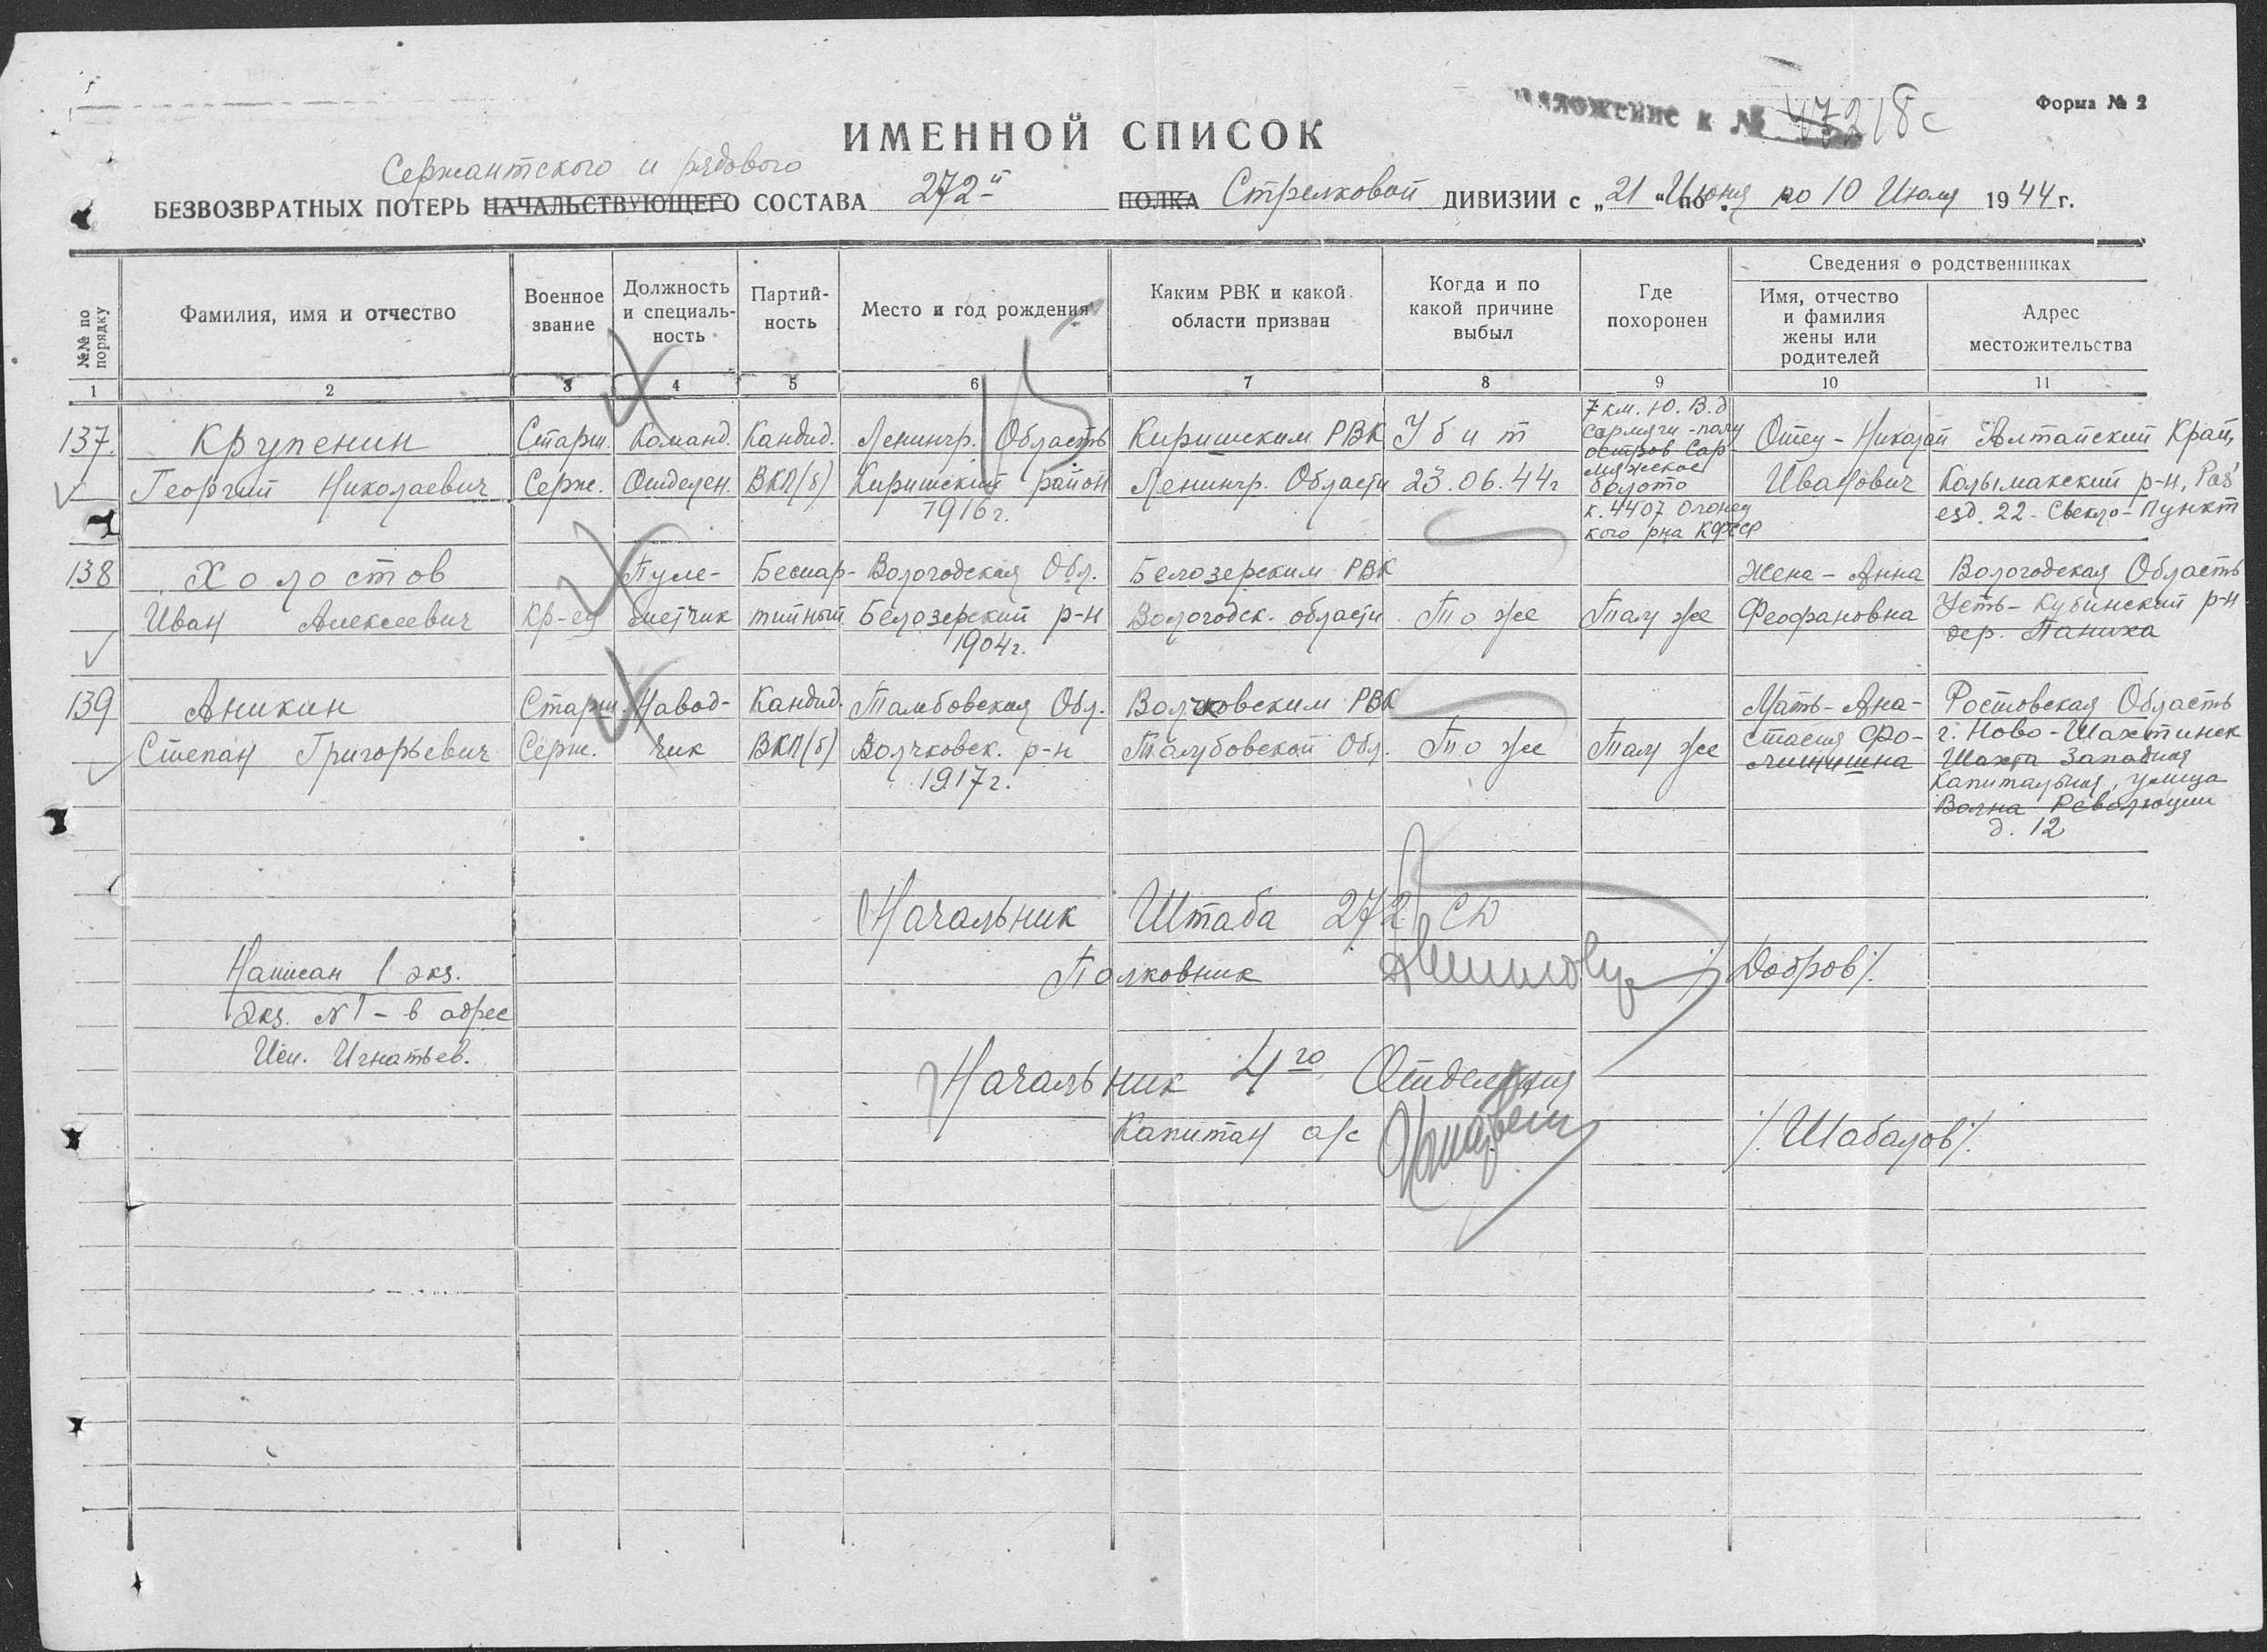 Приложение к № 47218с
Форма № 2
ИМЕННОЙ СПИСОК
Сержантского и рядового
БЕЗВОЗВРАТНЫХ ПОТЕРЬ НАЧАЛЬСТВУЮЩЕГО СОСТАВА 272й ПОЛКА Стрелковой ДИВИЗИИ с „21“ Июня по 10 Июля 1944 г.
№№ по порядку
Фамилия, имя и отчество
Военное звание
Должность и специаль-
ность
Партий-
ность
Место и год рождения
Каким РВК и какой
области призван
Когда и по
какой причине
выбыл
Где
похоронен
Сведения о родственниках
Имя, отчество
и фамилия
жены или
родителей
Адрес
местожительства
1 2 3 4 5 6 7 8 9 10 11
137. Крупенин
Георгий Николаевич
Старш.
Серж.
Команд.
Отделен.
Кандид.
ВКП(б)
Ленингр. Область
Киришский район
1916г.
Киришским РВК
Ленингр. Области
Убит
23.06.44г
7 км. Ю.В.д
Сармяги-полу
остров Сар
мяжское
болото
к.4407 Олонец
кого р-на КФССР
Отец - Николай
Иванович
Алтайский Край,
Калманский р-н, Раз
езд. 22 - Свекло-Пункт
138 Холостов
Иван Алексеевич
Кр-ец
Пуле-
метчик
Беспар-
тийный
Вологодская Обл.
Белозерский р-н
1904г.
Белозерским РВК
Вологодск. области
То же
Там же
Жена - Анна
Феофановна
Вологодская Область
Усть-Кубинский р-н
дер. Паниха
139 Аникин
Степан Григорьевич
Старш.
Серж.
Навод-
чик
Кандид.
ВКП(б)
Тамбовская Обл.
Волчковск. р-н
1917г.
Волчковским РВК
Тамбовской Обл.
То же
Там же
Мать - Ана-
стасия Фо-
Ростовская Область
г. Ново-Шахтинск
Шахта Западная
Капитальная, улица
Волна Революции
д. 12
Начальник Штаба 272 СД
Полковник /Добров/.
Написан 1 экз.
Экз. №1 - в адрес
Исп. Игнатьев.
Начальник 4го Отделения
Капитан а/с /Шабалов/.